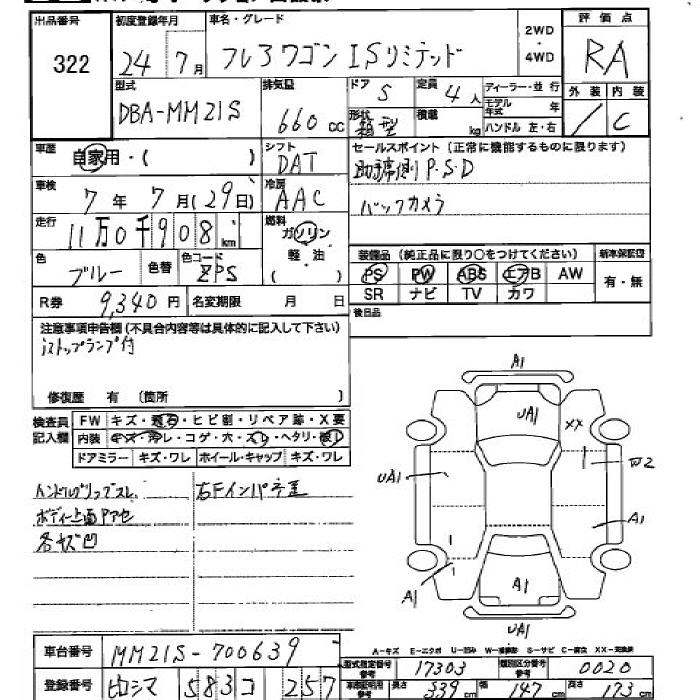 出品番号 初度登録年月 車名・グレード 2WD・4WD 評価点
322 24年 7月 フレアワゴン ISリミテッド RA
型式 排気量 ドア 定員 ディーラー・並行 外装 内装
DBA-MM21S 660cc 5 4人 モデル年式 年 / C
形状 積載 ハンドル 左・右
箱型 kg
車歴 シフト セールスポイント(正常に機能するものに限ります)
自家用・( ) DAT 助手席側P.S.D
車検 冷房
7年 7月(29日) AAC バックカメラ
走行 燃料
11万0千908km ガソリン
軽・油
( )
色 色替 色コード 装備品(純正品に限り○をつけてください) 新車保証書
ブルー ZPS PS PW ABS エアB AW 有・無
SR ナビ TV カワ
R券 9,340円 名変期限 月 日 後日品
注意事項申告欄(不具合内容等は具体的に記入して下さい)
iストップランプ付
修復歴 有 (箇所 )
検査員 FW キズ・飛石・ヒビ割・リペア跡・X要
記入欄 内装 キズ・汚レ・コゲ・穴・スレ・ヘタリ・破レ
ドアミラー キズ・ワレ ホイール・キャップ キズ・ワレ
ハンドルグリップスレ 右Fインパネ歪
ボディー上面アセ
各キズ凹
A1
UA1
XX
UA1
W2
A1
A1
A1
UA1
A-キズ E-エクボ U-凹み W-補修跡 S-サビ C-腐食 XX-交換済
車台番号 MM21S-700639 型式指定番号 参考 17303 類別区分番号 参考 0020
登録番号 ヒロシマ 583 コ 257 車庫証明用 参考 長さ 339cm 幅 147cm 高さ 173cm